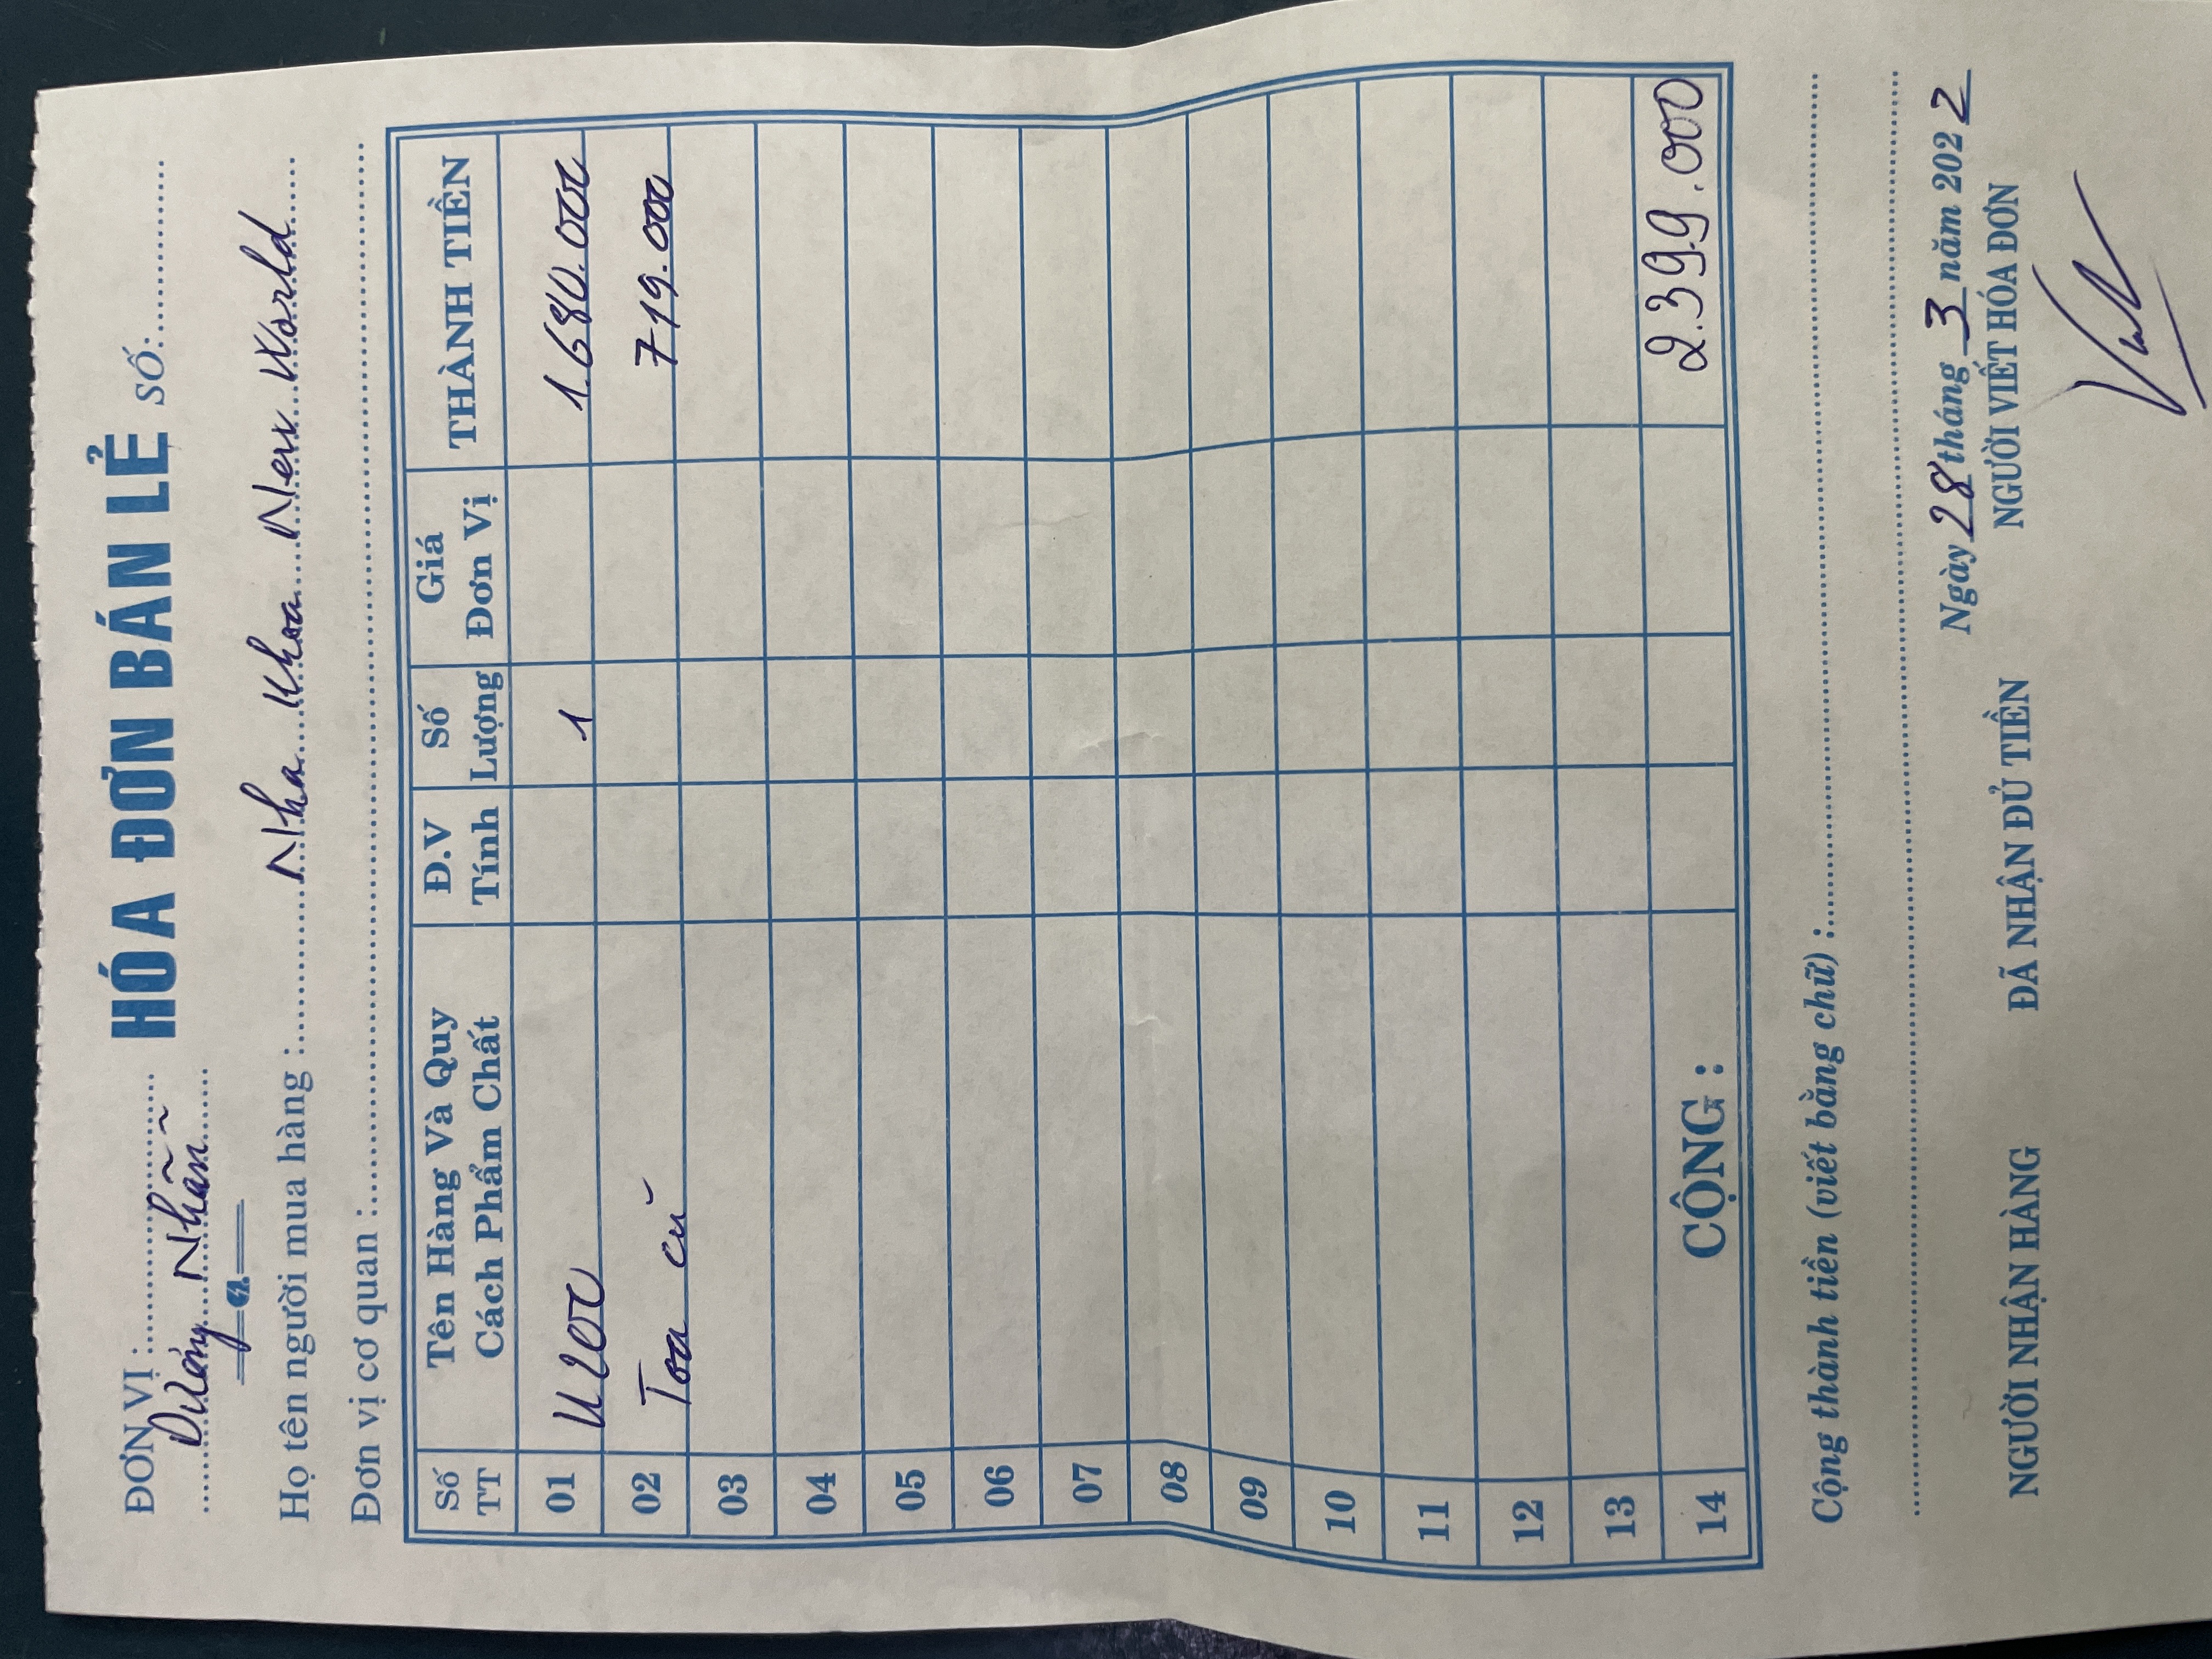 ĐƠN VỊ :
HÓA ĐƠN BÁN LẺ SỐ:
Dương Nhẫn
Họ tên người mua hàng : Nha Khoa New World
Đơn vị cơ quan :
Số TT Tên Hàng Và Quy Cách Phẩm Chất Đ.V Tính Số Lượng Giá Đơn Vị THÀNH TIỀN
01 U200 1 1.680.000
02 Toa cũ 719.000
03
04
05
06
07
08
09
10
11
12
13
14 CỘNG : 2.399.000
Cộng thành tiền (viết bằng chữ) :
Ngày 28 tháng 3 năm 2022
NGƯỜI NHẬN HÀNG ĐÃ NHẬN ĐỦ TIỀN NGƯỜI VIẾT HÓA ĐƠN